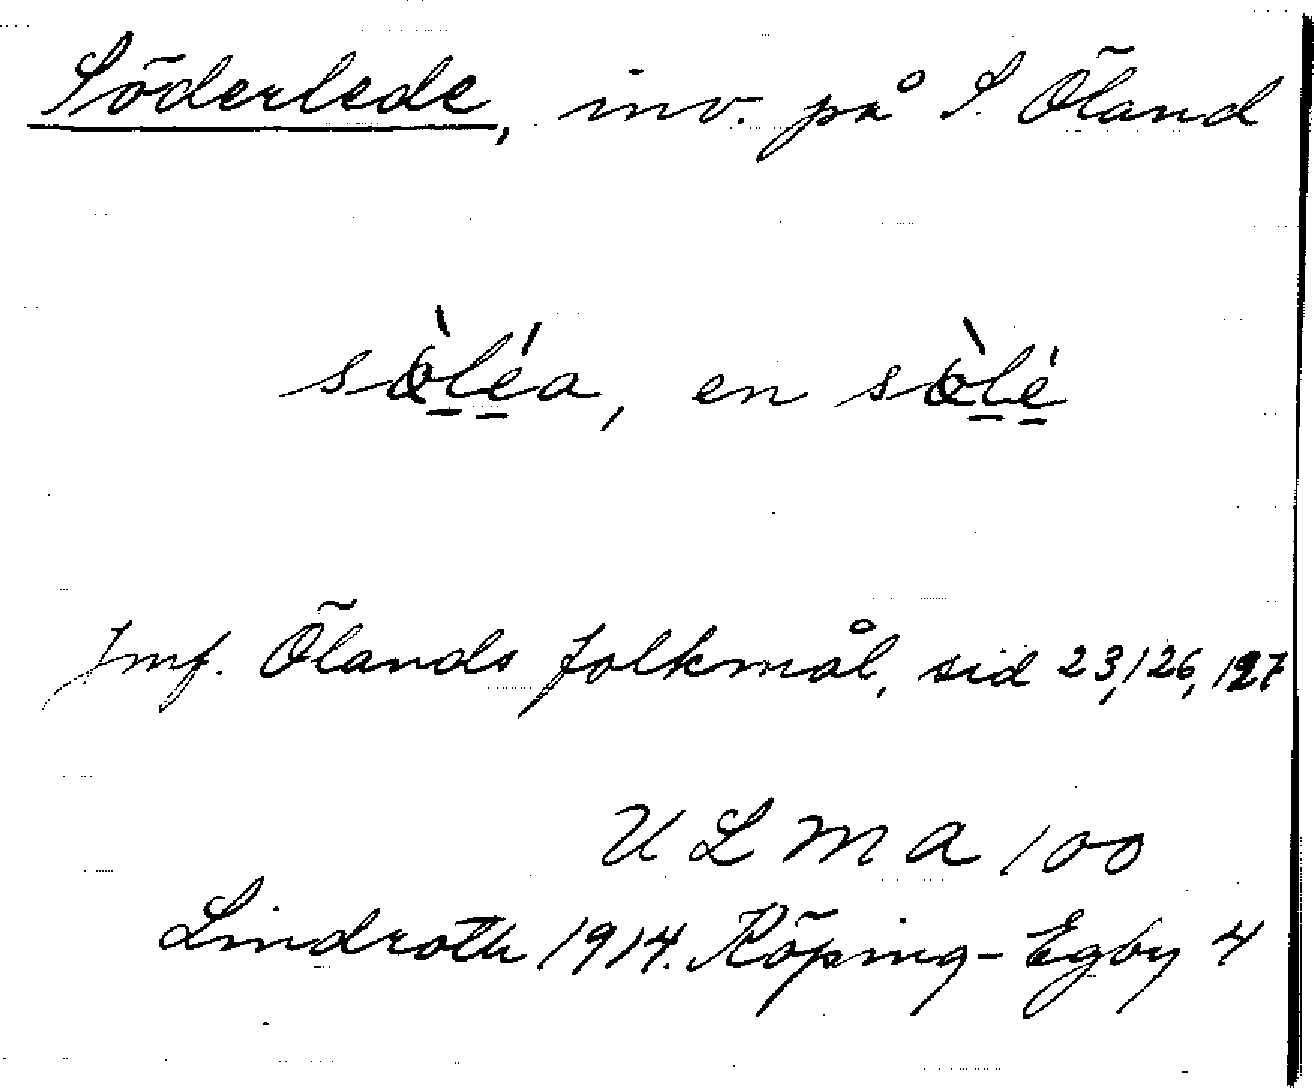 Söderlede, inv. på S. Öland
sὼléa, en sὼlé
Jmf. Ölands folkmål, sid 23, 126, 127
ULMA 100
Lindroth 1914. Köping-Egby 4